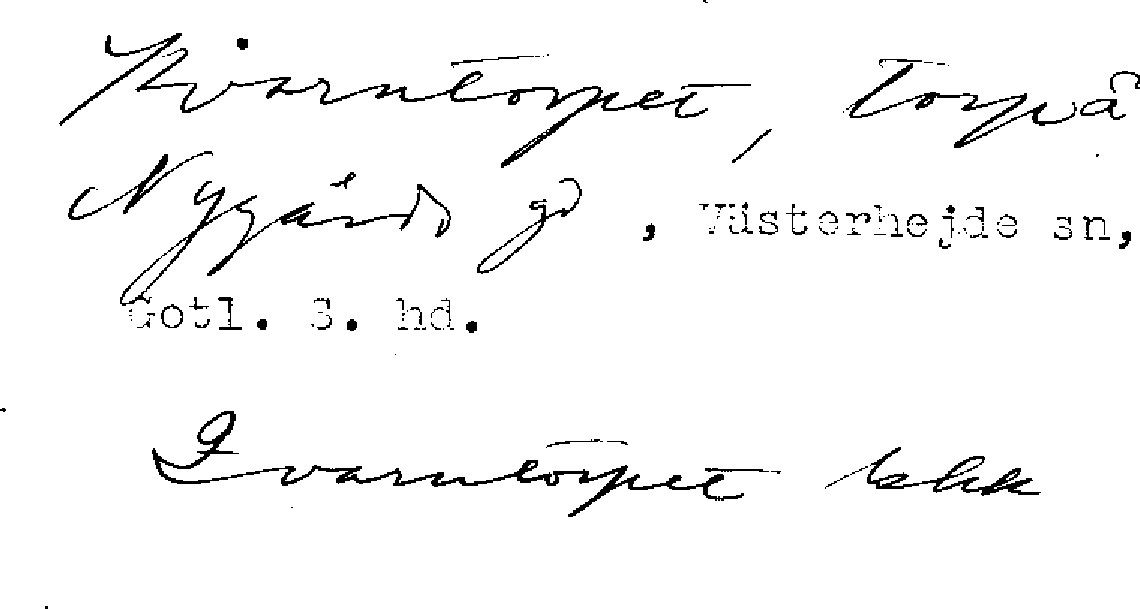 Kvarntorpet, torp å
Nygårds gd, Västerhejde sn,
Gotl. S. hd.
Qvarntorpet